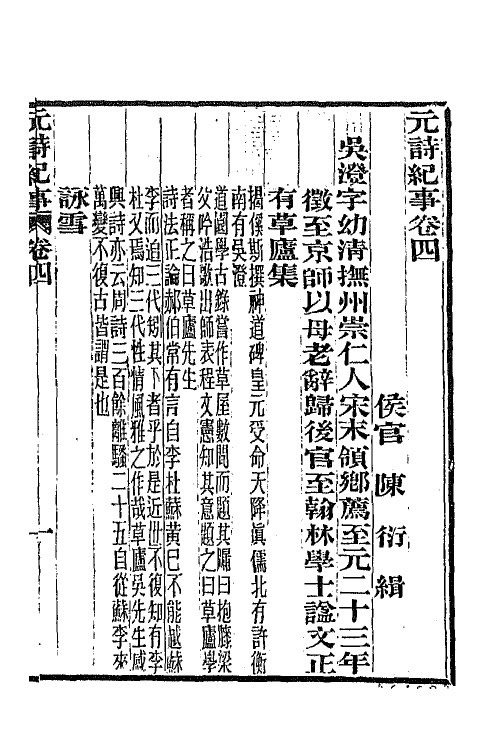 元詩紀事卷四
侯官 陳衍緝
吳澄字幼清撫州崇仁人宋末領鄉薦至元二十三年
徵至京師以母老辭歸後官至翰林學士謚文正
有草廬集
揭傒斯撰神道碑皇元受命天降眞儒北有許衡
南有吳澄
道園學古錄嘗作草屋數間而題其牖曰抱膝梁
父吟浩歌出師表程文憲知其意題之曰草廬學
者稱之曰草廬先生
詩法正論郝伯常有言自李杜蘇黃已不能越蘇
李而追三代矧其下者乎於是近世不復知有李
杜又焉知三代性情風雅之作哉草廬吳先生感
興詩亦云周詩三百餘離騷二十五自從蘇李來
萬變不復古皆謂是也
詠雪
元詩紀事 卷四 一